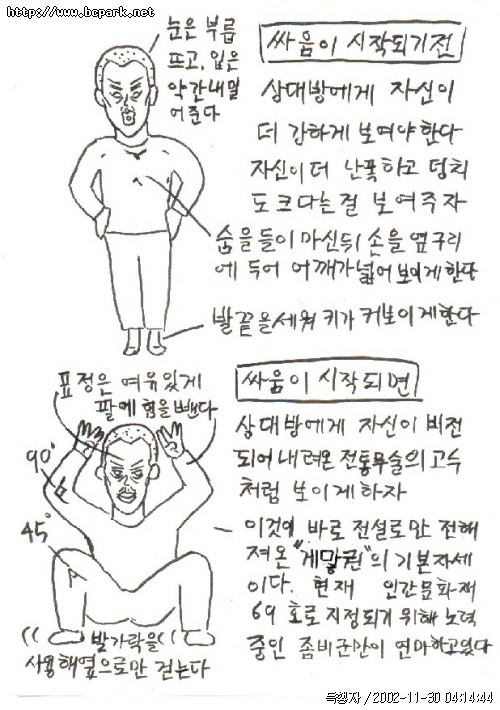 http://www.bcpark.net
눈은 부릅
뜨고, 입은
약간 내밀
어준다
싸움이 시작되기전
상대방에게 자신이
더 강하게 보여야 한다
자신이 더 난폭하고 덩치
도 크다는걸 보여주자
숨을 들이 마신뒤 손을 옆구리
에 두어 어깨가 넓어 보이게 한다
발끝을 세워 키가 커보이게 한다
싸움이 시작되면
표정은 여유있게
팔에 힘을 뺀다
90°
45°
상대방에게 자신이 비전
되어 내려온 전통무술의 고수
처럼 보이게 하자
이것이 바로 전설로만 전해
져온 "게맣권"의 기본자세
이다. 현재 인간문화재
69 호로 지정되기 위해 노력
중인 좀비군만이 연마하고있다
(( 발가락을 ((
사용해옆으로만 걷는다
득햏자 / 2002-11-30 04:14:44